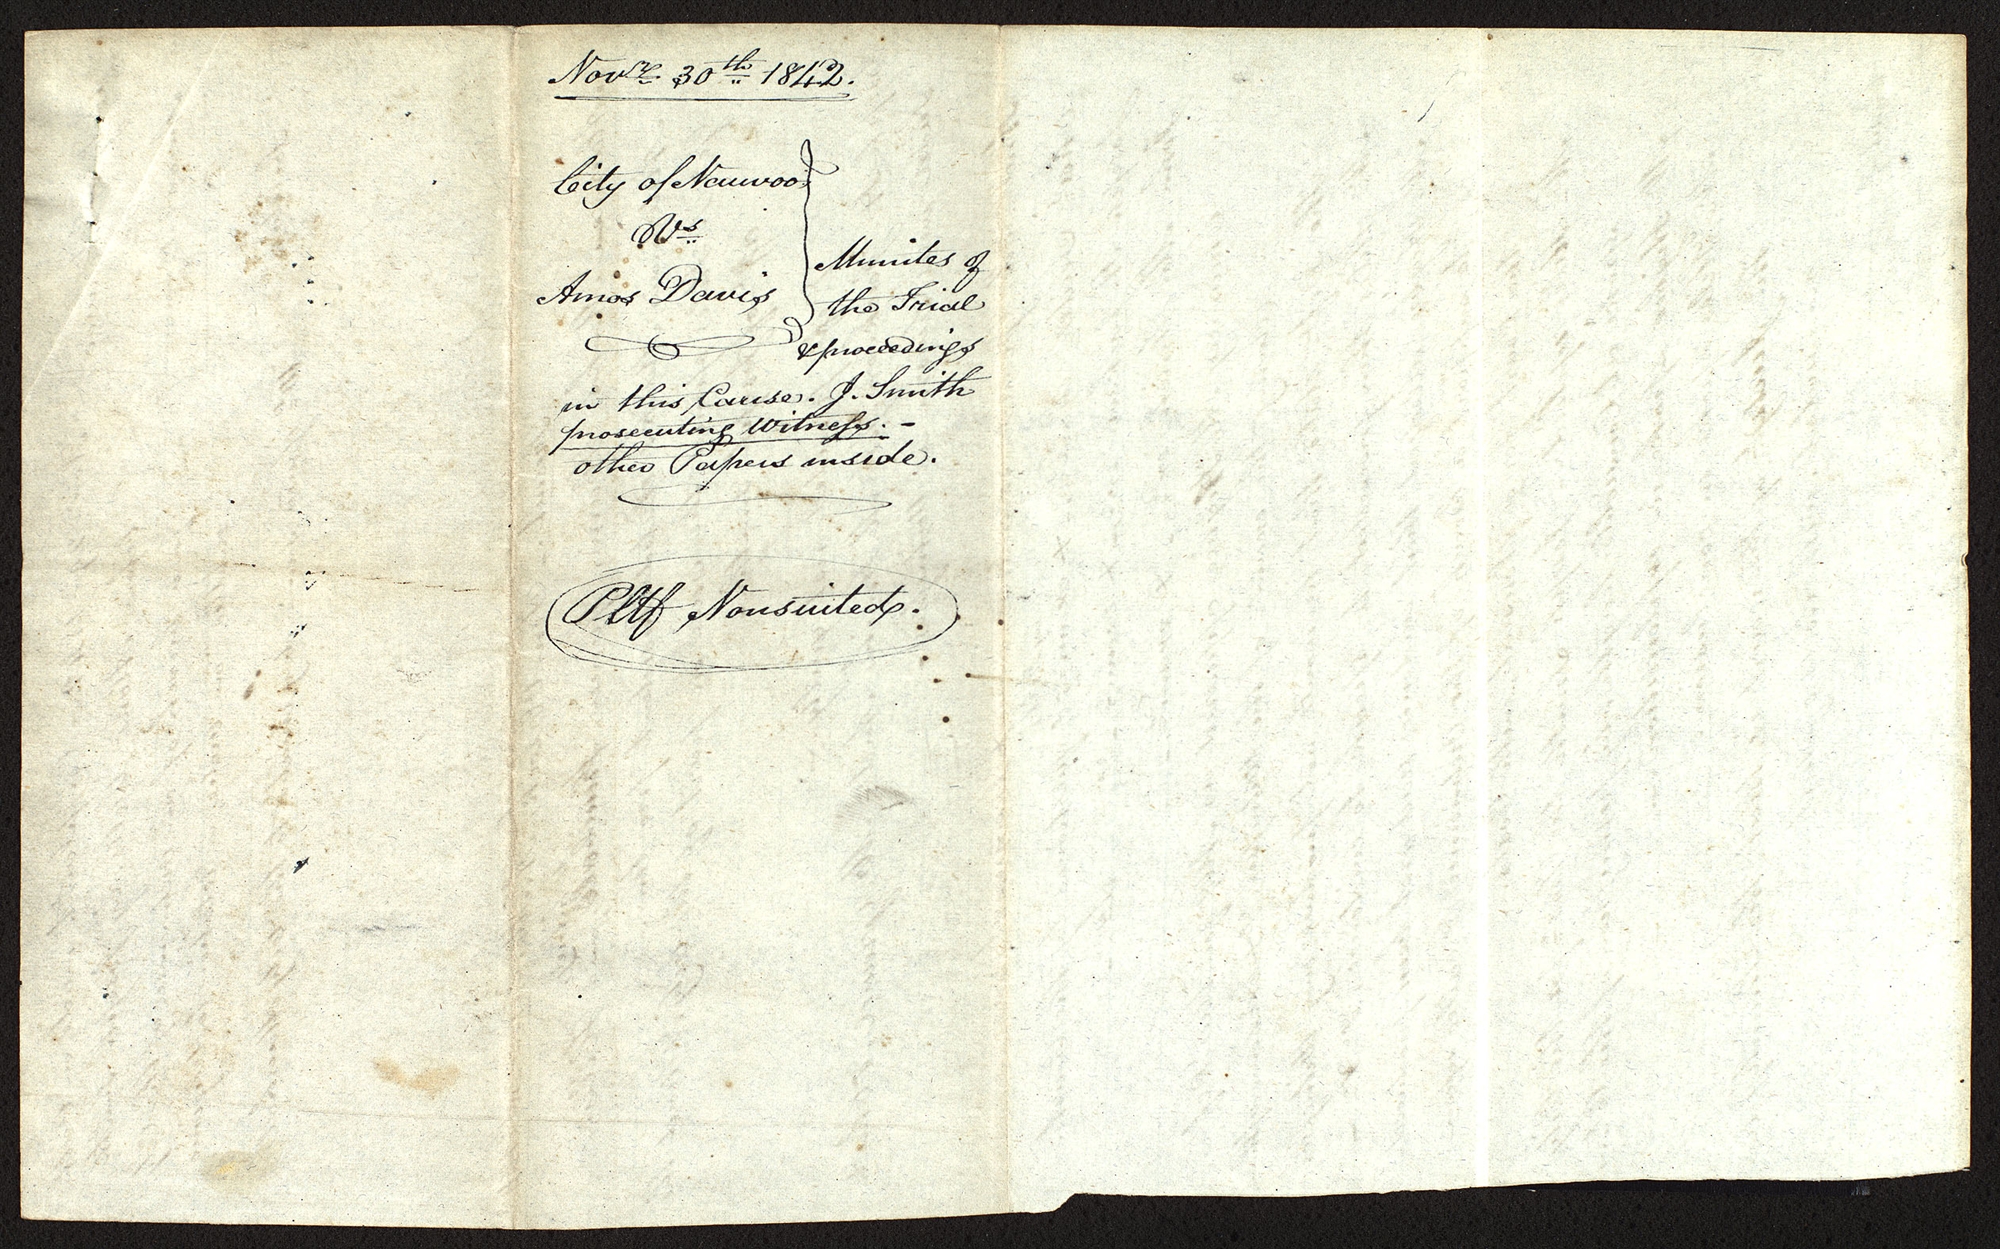 Novr. 30th 1842.
City of Nauvoo
Vs
Amos Davis
Munites of
the Trial
& proceedings
in this Cause. J. Smith
prosecuting Witness. -
other Papers inside.
Pltf Nonsuited.